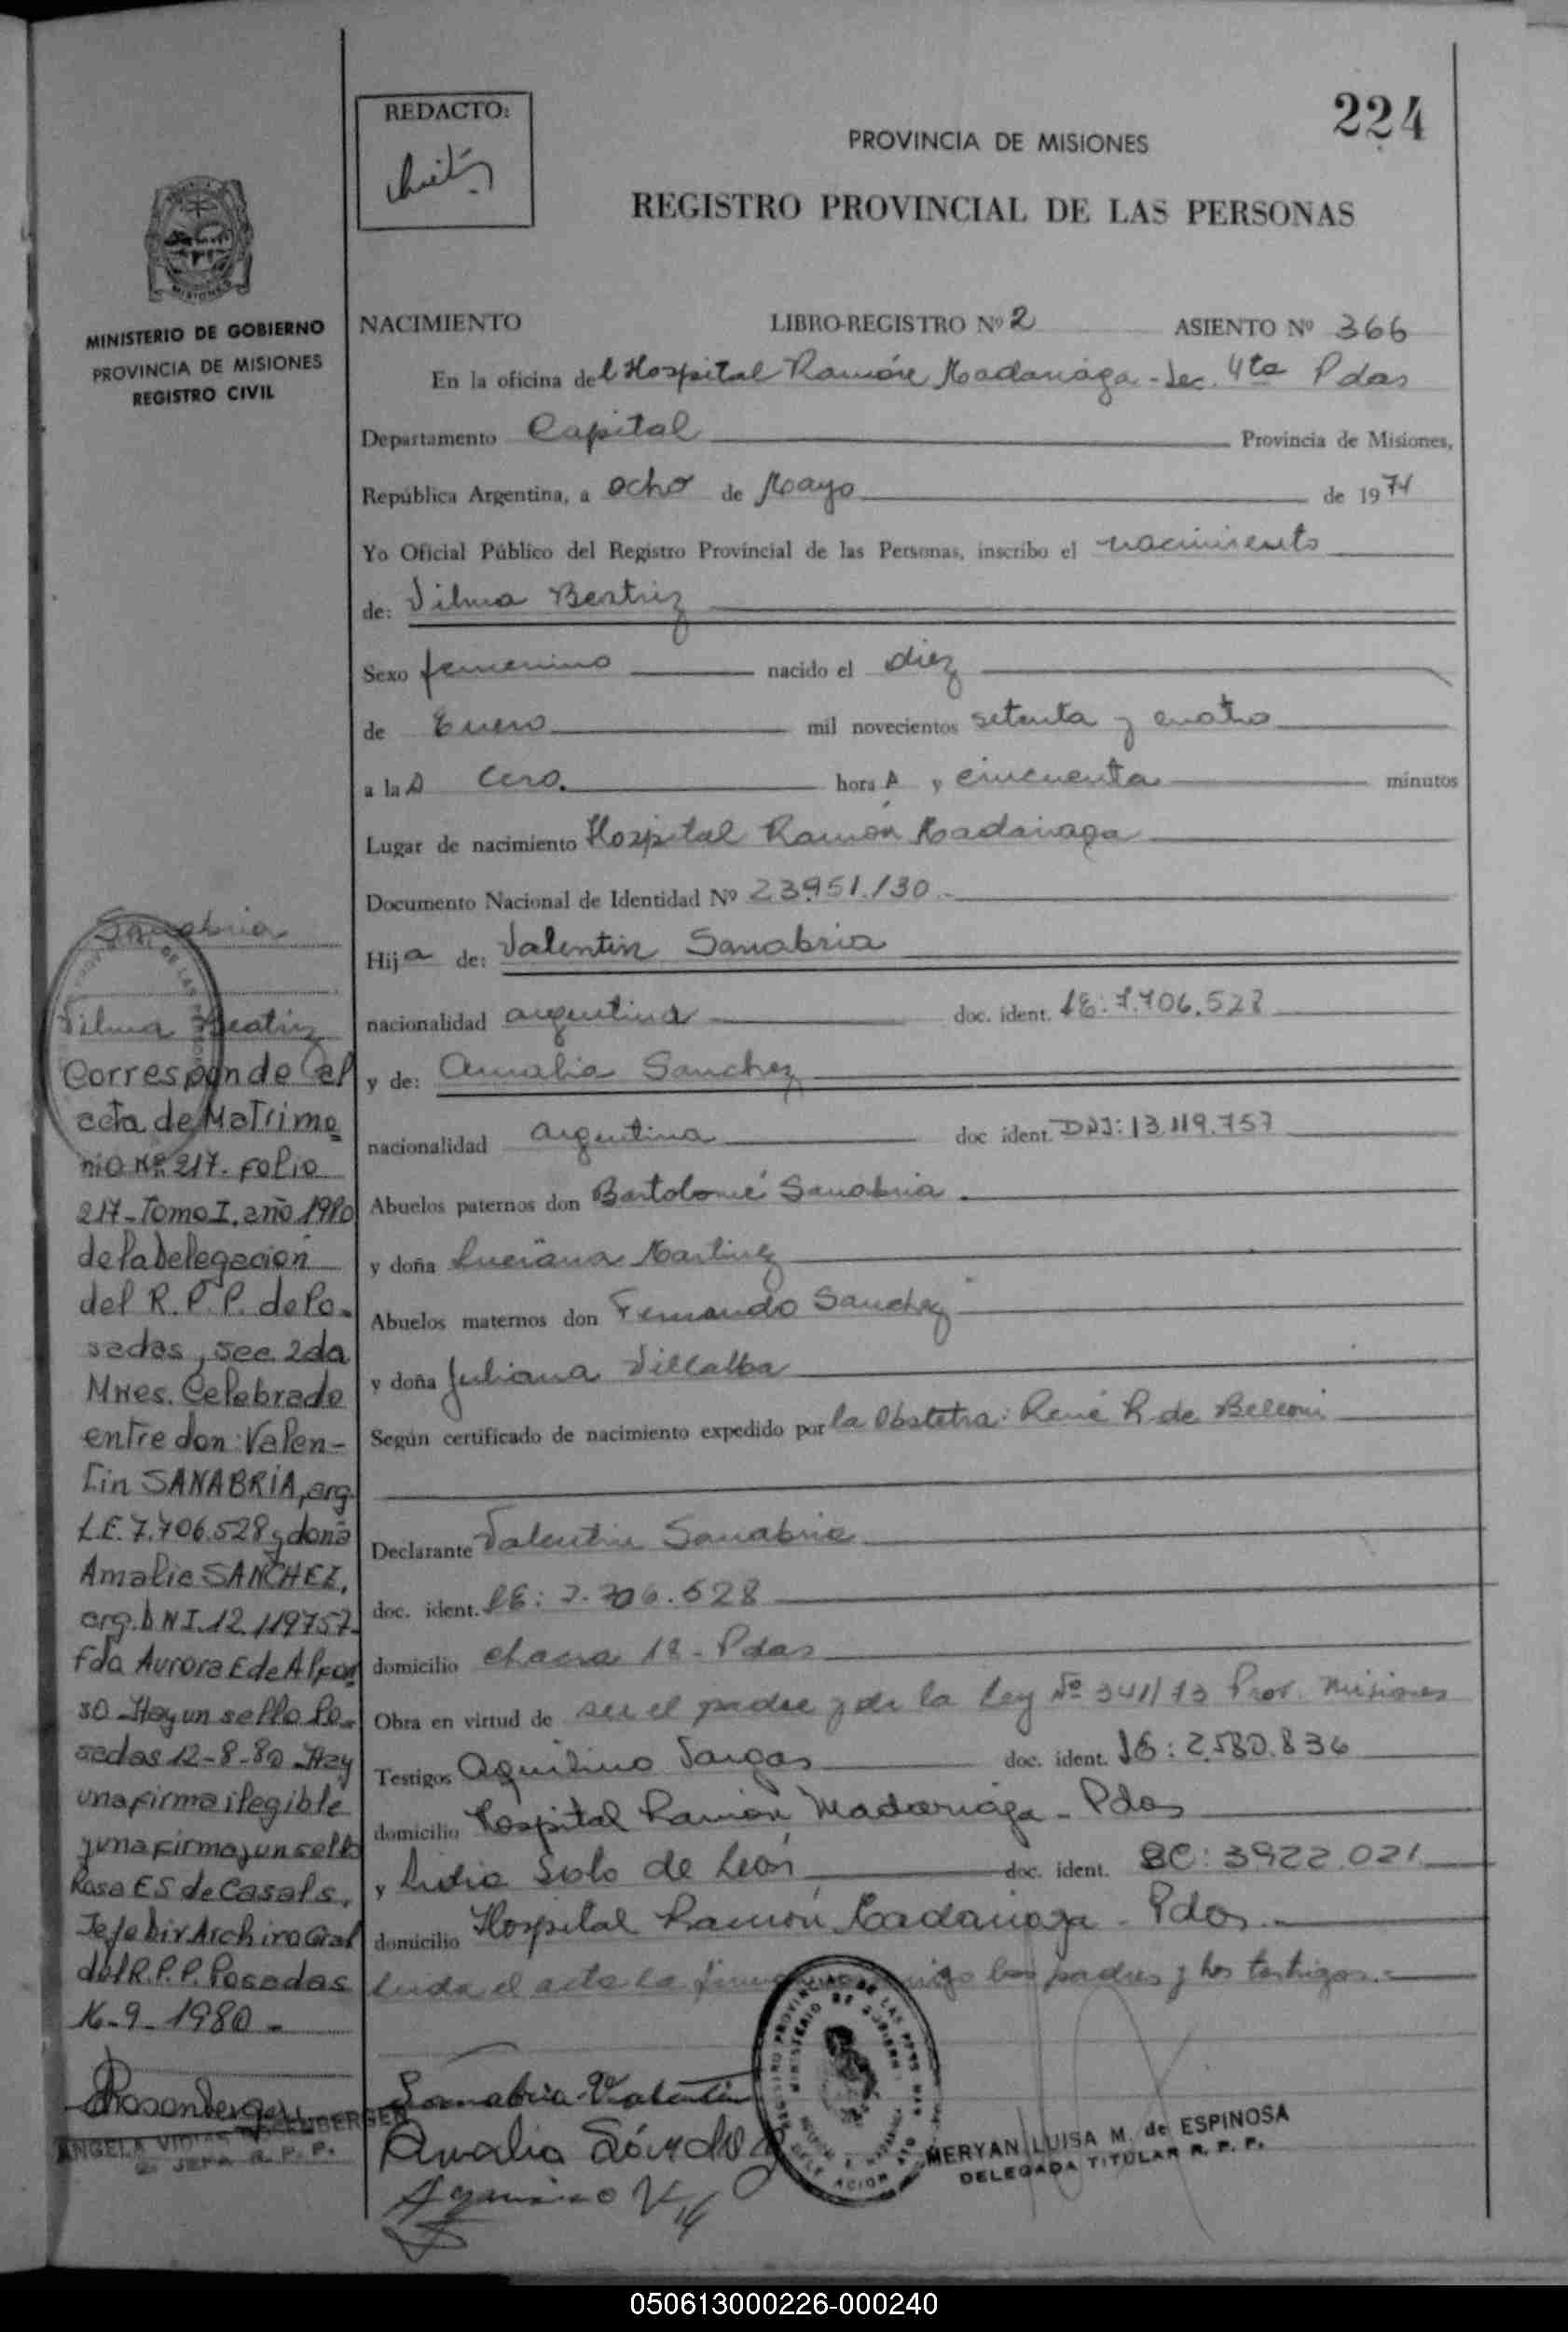 224
REDACTO:
PROVINCIA DE MISIONES
REGISTRO PROVINCIAL DE LAS PERSONAS
MISIONES
MINISTERIO DE GOBIERNO
PROVINCIA DE MISIONES
REGISTRO CIVIL
NACIMIENTO LIBRO-REGISTRO Nº 2 ASIENTO Nº 366
En la oficina del Hospital Ramón Madariaga - Sec. 4ta Pdas
Departamento Capital Provincia de Misiones,
República Argentina, a ocho de Mayo de 1974
Yo Oficial Público del Registro Provincial de las Personas, inscribo el nacimiento
de: Vilma Beatriz
Sexo femenino nacido el diez
de Enero mil novecientos setenta y cuatro
a las cero. horas y cincuenta minutos
Lugar de nacimiento Hospital Ramón Madariaga
Documento Nacional de Identidad Nº 23.951.130.-
Hija de: Valentin Sanabria
nacionalidad argentina doc. ident. LE: 7.706.528
y de: Amalia Sanchez
nacionalidad argentina doc ident. DNI: 13.119.757
Abuelos paternos don Bartolomé Sanabria.
y doña Luciana Martinez
Abuelos maternos don Fernando Sanchez
y doña Juliana Villalba
Según certificado de nacimiento expedido por la Obstetra: René R. de Belloni
Declarante Valentin Sanabria
doc. ident. LE: 7.706.528
domicilio chacra 18 - Pdas
Obra en virtud de ser el padre y de la Ley Nº 341/73 Prov. Misiones
Testigos Aquilino Vargas doc. ident. LE: 2.580.836
domicilio Hospital Ramón Madariaga - Pdas
y Lidia Soto de León doc. ident. BC: 3922.021
domicilio Hospital Ramón Madariaga - Pdas.
Leida el acta la los padres y los testigos.=
Sanabria
Vilma Beatriz
Corresponde al
acta de Matrimo
nio Nº 217. Folio
217- Tomo I, año 1980
de la Delegación
del R. P. P. de Po-
sadas, sec. 2da
Mnes. Celebrado
entre don: Valen-
tin SANABRIA, arg.
L.E. 7.706.528 y doña
Amalia SANCHEZ,
arg. DNI. 12.119757-
Fdo Aurora E de Alfon
so Hay un sello Po-
sadas 12-8-80 - Hay
una firma ilegible
y una firma y un sello
Rosa E S de Casals,
Jefe Dir Archivo Gral
del R.P.P. Posadas
16-9-1980-
Rosenberger
ANGELA
JEFA R. P. P.
Sanabria Valentin
Amalia Sánchez
MERYAN LUISA M. de ESPINOSA
DELEGADA TITULAR R. P. P.
050613000226-000240